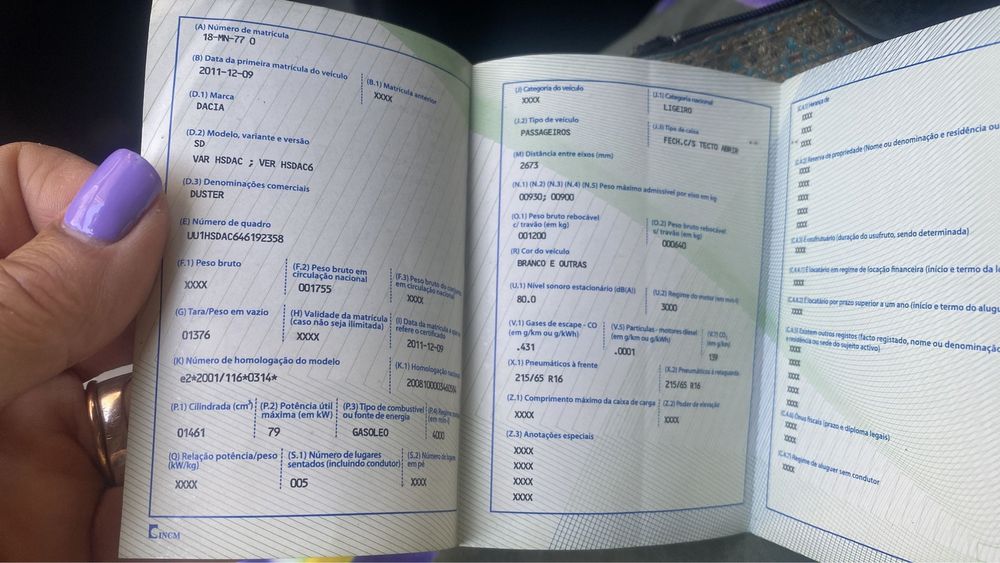 (A) Número de matrícula
18-MN-77 0
(B) Data da primeira matrícula do veículo
2011-12-09
(B.1) Matrícula anterior
XXXX
(D.1) Marca
DACIA
(D.2) Modelo, variante e versão
SD
VAR HSDAC ; VER HSDAC6
(D.3) Denominações comerciais
DUSTER
(E) Número de quadro
UU1HSDAC646192358
(F.1) Peso bruto
XXXX
(F.2) Peso bruto em
circulação nacional
001755
(F.3) Peso bruto do
em circulação nacional
XXXX
(G) Tara/Peso em vazio
01376
(H) Validade da matrícula
(caso não seja ilimitada)
XXXX
(I) Data da matrícula a que se
refere o certificado
2011-12-09
(K) Número de homologação do modelo
e2*2001/116*0314*
(K.1) Homologação
(P.1) Cilindrada (cm³)
01461
(P.2) Potência útil
máxima (em kW)
79
(P.3) Tipo de combustível
ou fonte de energia
GASOLEO
(P.4) Regime
(em min-1)
4000
(Q) Relação potência/peso
(kW/kg)
XXXX
(S.1) Número de lugares
sentados (incluindo condutor)
005
(S.2) Número de lugares
em pé
XXXX
INCM
(J) Categoria do veículo
XXXX
(J.1) Categoria nacional
LIGEIRO
(J.2) Tipo de veículo
PASSAGEIROS
(J.3) Tipo de caixa
FECH.C/S TECTO ABRIR
(M) Distância entre eixos (mm)
2673
(N.1) (N.2) (N.3) (N.4) (N.5) Peso máximo admissível por eixo em kg
00930; 00900
(O.1) Peso bruto rebocável
c/ travão (em kg)
001200
(O.2) Peso bruto rebocável
s/ travão (em kg)
000640
(R) Cor do veículo
BRANCO E OUTRAS
(U.1) Nível sonoro estacionário (dB(A))
80.0
(U.2) Regime do motor (em min-1)
3000
(V.1) Gases de escape - CO
(em g/km ou g/kWh)
.431
(V.5) Partículas - motores diesel
(em g/km ou g/kWh)
.0001
(V.7) CO₂
(em g/km)
139
(X.1) Pneumáticos à frente
215/65 R16
(X.2) Pneumáticos à retaguarda
215/65 R16
(Z.1) Comprimento máximo da caixa de carga
XXXX
(Z.2) Poder de elevação
XXXX
(Z.3) Anotações especiais
XXXX
XXXX
XXXX
XXXX
(C.4.1) Herança de
XXXX
XXXX
XXXX
(C.4.2) Reserva de propriedade (Nome ou denominação e residência ou
XXXX
XXXX
XXXX
XXXX
XXXX
(C.4.3) É usufrutuário (duração do usufruto, sendo determinada)
XXXX
(C.4.4.1) É locatário em regime de locação financeira (início e termo da
XXXX
(C.4.4.2) É locatário por prazo superior a um ano (início e termo do
XXXX
(C.4.5) Existem outros registos (facto registado, nome ou denominação
e residência ou sede do sujeito activo)
XXXX
XXXX
XXXX
XXXX
XXXX
(C.4.6) Ónus fiscais (prazo e diploma legais)
XXXX
XXXX
(C.4.7) Regime de aluguer sem condutor
XXXX